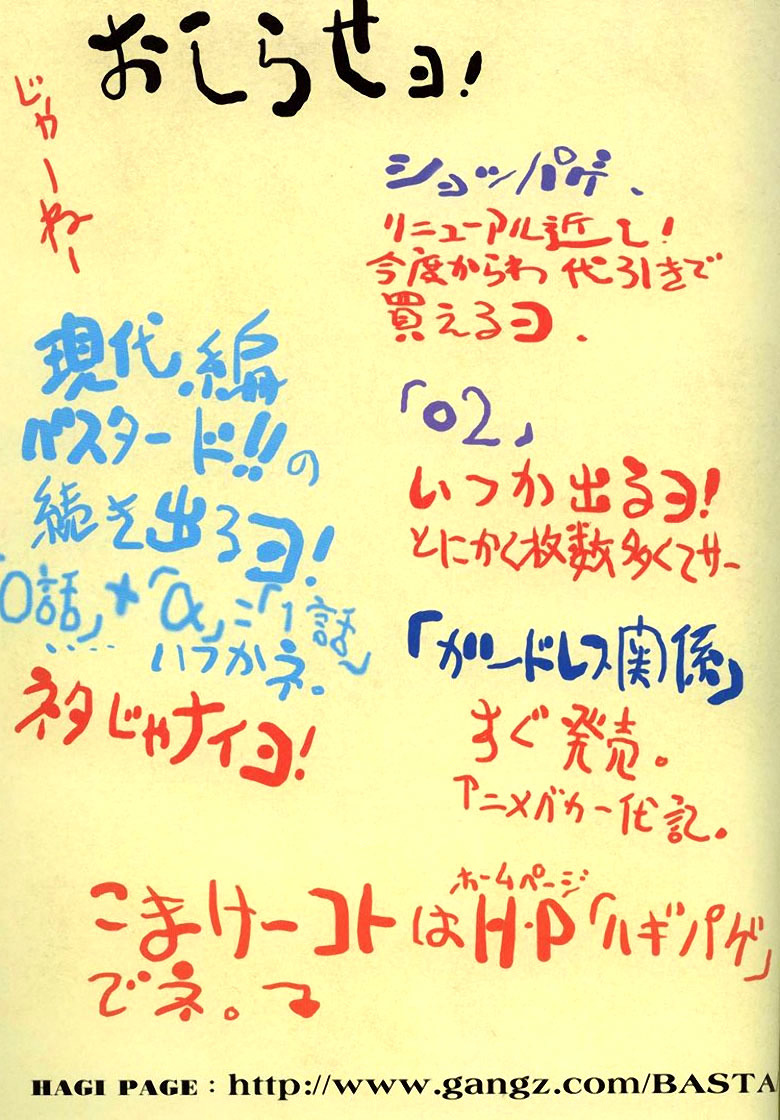 おしらせヨ!
ショッパゲ、
リニューアル近し!
今度からわ代引きで
買えるヨ、
「02」
いつか出るヨ!
とにかく枚数多くてサー
「ガードレス関係」
すぐ発売。
アニメバカ一代記。
現代編
バスタード!!の
続き出るヨ!
「0話」+「α」=「1話」
‥‥いつかネ。
ネタじゃナイヨ!
ホームページ
こまけーコトはH・P「ハギパゲ」
でネ。
じゃーねー
HAGI PAGE : http://www.gangz.com/BASTA